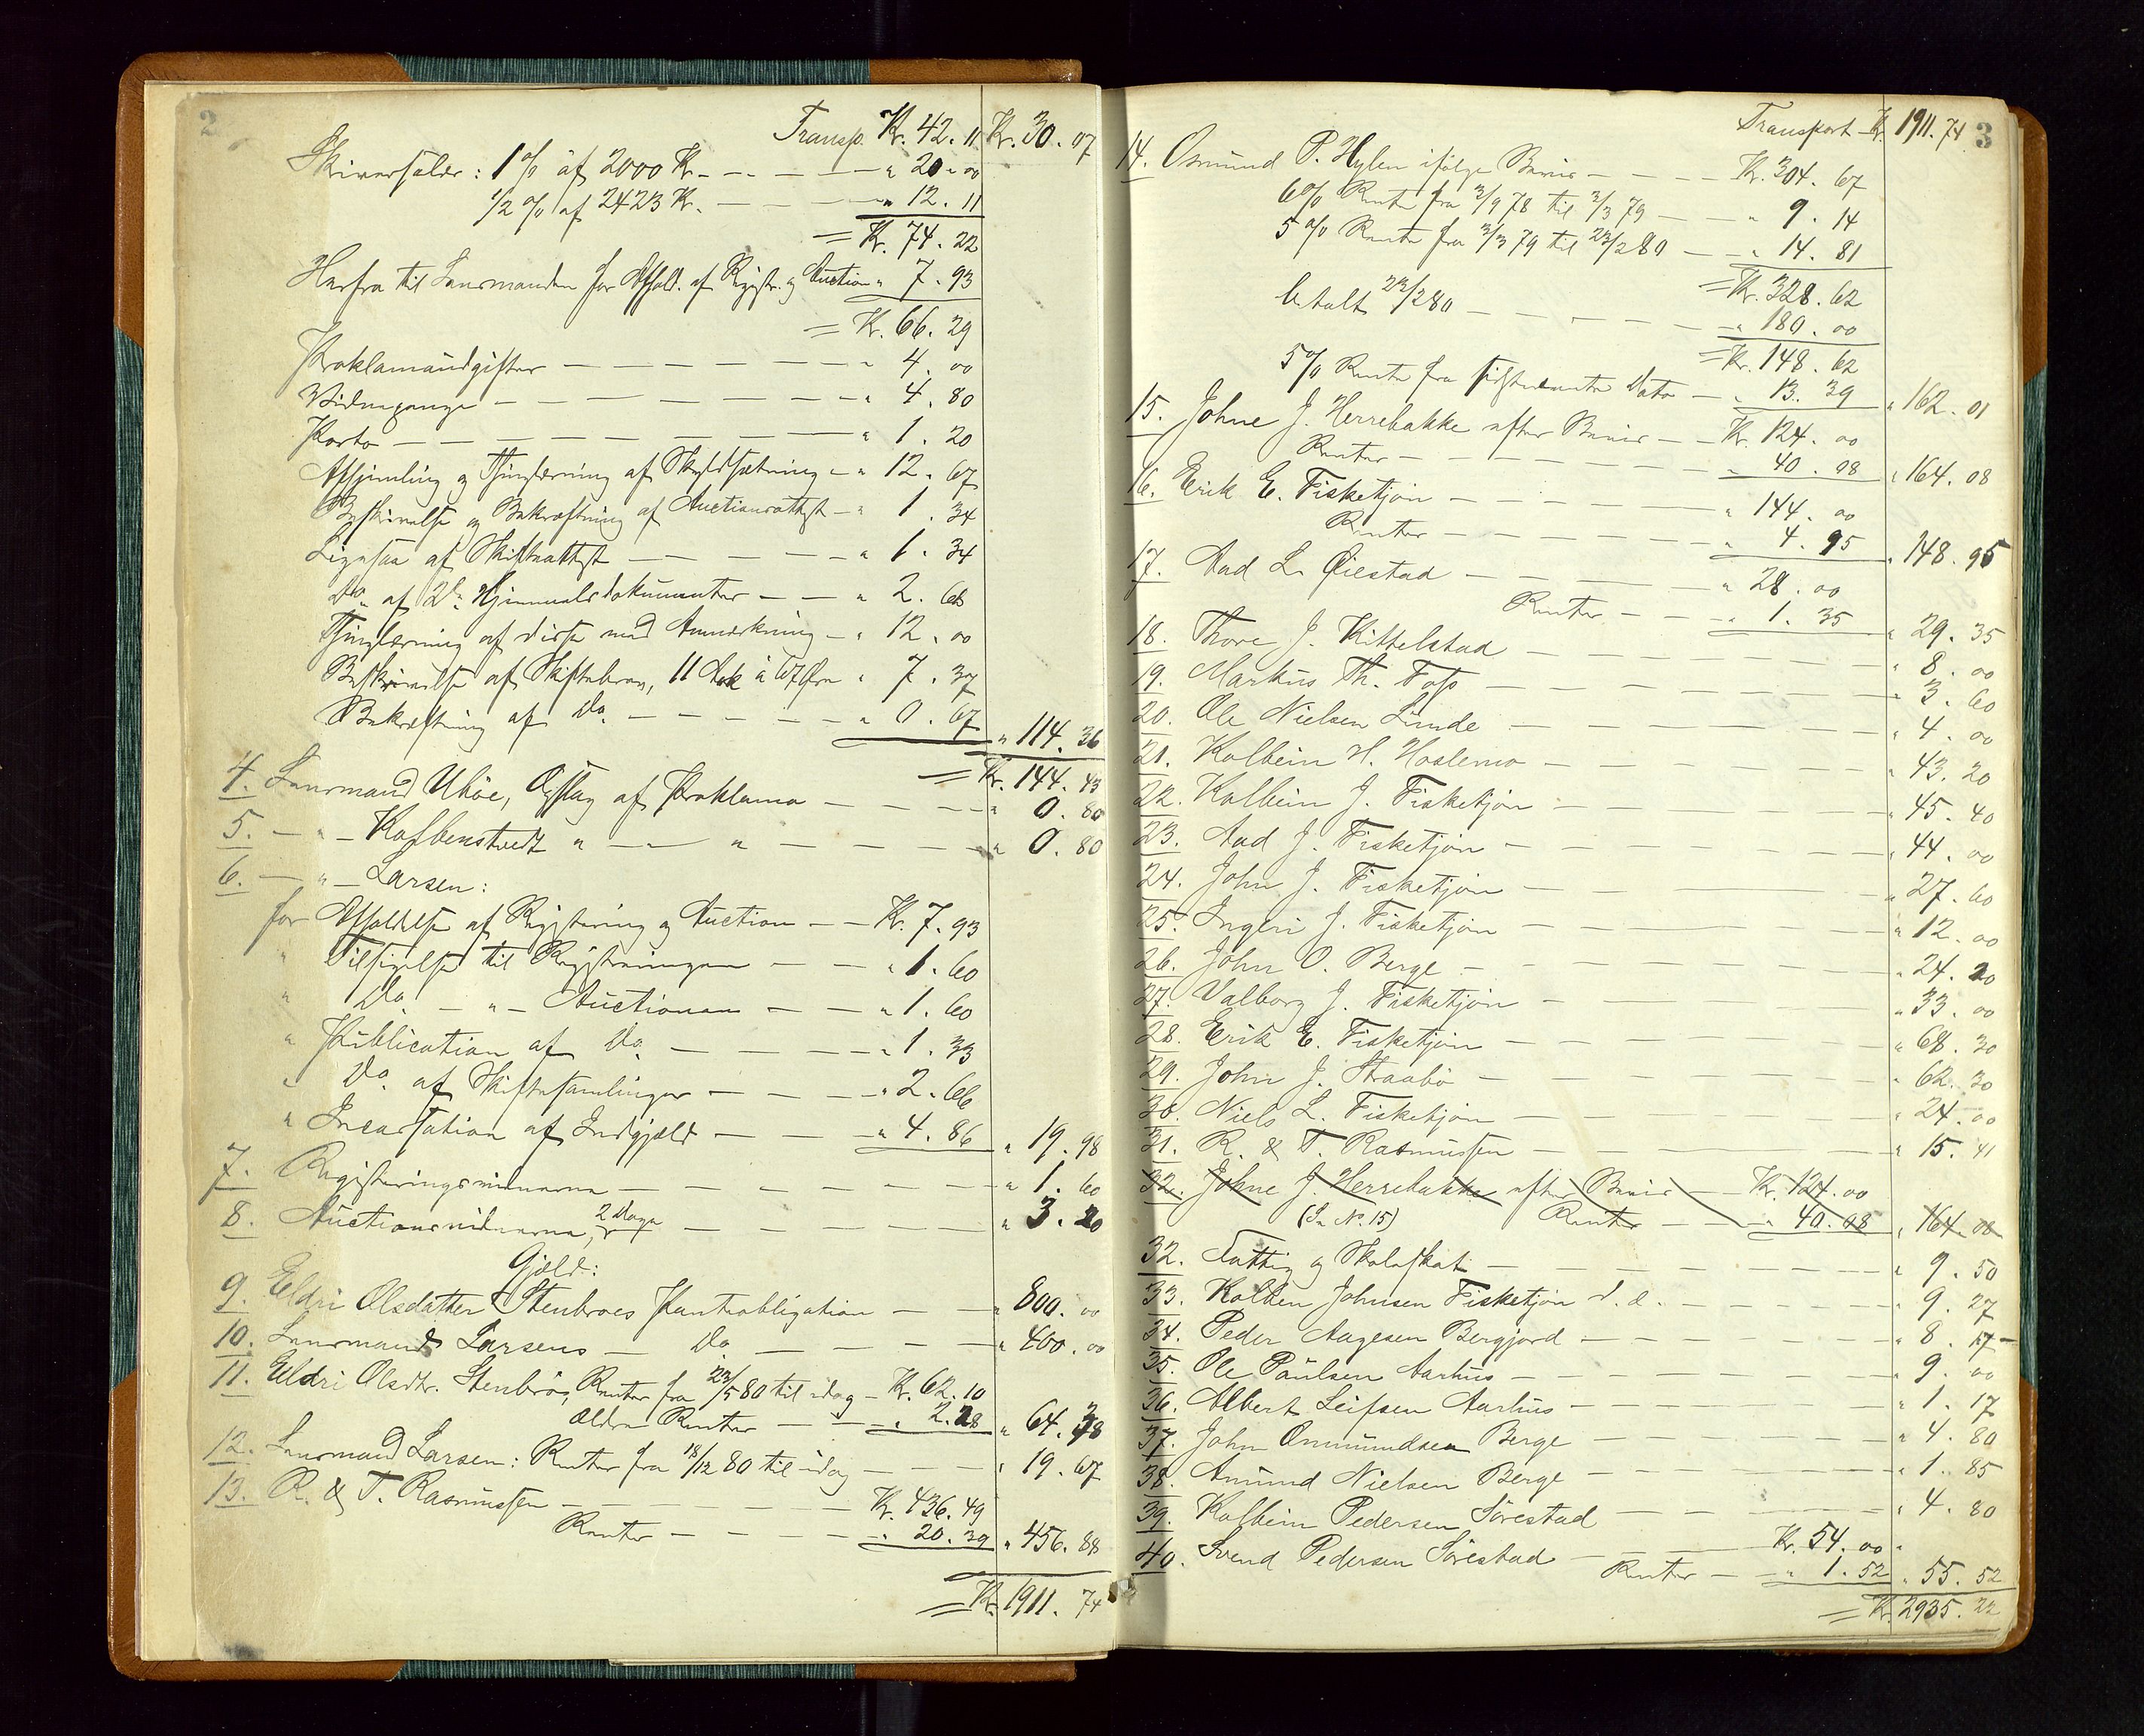 2
Transp. Kr. 42. 11 Kr. 30. 07
Skiversalær: 1% af 2000 Kr. - - - - " 20. 00
1/2 % af 2423 Kr. - - - " 12. 11
= Kr. 74. 22
Herfra til Lensmanden for Afhold. af Registr. og Auction " 7. 93
= Kr. 66. 29
Proklamaudgifter - - - - " 4. 00
Vidnepenge - - - - " 4. 80
Porto - - - - " 1. 20
Afhjemling og Thinglæsning af Skyldsætning - " 12. 67
Beskrivelse og Bekræftning af Auctionsattest - " 1. 34
Ligesaa af Skifteattest - - - " 1. 34
Do. af 2de Hjemmelsdokumenter - - " 2. 68
Thinglæsning af disse med Anmærkning - " 12. 00
Beskrivelse af Skiftebrev, 11 Ark à 67 Øre " 7. 37
Bekræftning af Do. - - - - " 0. 67 " 114. 36
= Kr. 144. 43
4. Lensmand Ubøe, Opslag af Proklama - - - " 0. 80
5. - " - Kolbenstvedt " - " - - - " 0. 80
6. - " - Larsen:
for Afholdelse af Registering og Auction - - Kr. 7. 93
" Tilsigelse til Registeringen - - " 1. 60
" Do. - " - Auctionen - - " 1. 60
" Publication af Do. - - - " 1. 33
" Do. af Skiftesamlinger - - - " 2. 66
" Incassation af Indgjæld - - - " 4. 86 " 19. 98
7. Registeringsvidnerne - - - - " 1. 60
8. Auctionsvidnerne, 2 Dage - - - " 3. 20
Gjæld:
9. Eldri Olsdatter Stenbroes Panteobligation - - " 800. 00
10. Lensmand Larsens - Do. - - - " 400. 00
11. Eldri Olsdtr. Stenbrø, Renter fra 23/5 80 til idag - Kr. 62. 10
ældre Renter - - " 2. 28 " 64. 38
12. Lensmand Larsen: Renter fra 18/12 80 til idag - - - " 19. 67
13. R. & T. Rasmussen - - - - Kr. 436. 49
Renter - - - " 20. 39 " 456. 88
= Kr. 1911. 74
3
Transport Kr. 1911. 74
14. Osmund P. Hylen ifølge Bevis - - - Kr. 304. 67
6% Rente fra 3/9 78 til 3/3 79 - - " 9. 14
5% Rente fra 3/3 79 til 23/2 80 - - " 14. 81
= Kr. 328. 62
betalt 23/2 80 - - - " 180. 00
= Kr. 148. 62
5% Rente fra sidstnævnte Dato - " 13. 39 " 162. 01
15. Johne J. Herrebakke efter Bevis - - Kr. 124. 00
Renter - - - " 40. 08 " 164. 08
16. Erik E. Fisketjøn - - - " 144. 00
Renter - - - " 4. 95 " 148. 95
17. Aad L. Øiestad - - - " 28. 00
Renter - - " 1. 35 " 29. 35
18. Thore J. Kittelstad - - - " 8. 00
19. Markus Th. Foss - - - " 3. 60
20. Ole Nielsen Lunde - - - " 4. 00
21. Kolbein H. Haslemo - - - " 43. 20
22. Kolbein J. Fisketjøn - - - " 45. 40
23. Aad J. Fisketjøn - - - " 44. 00
24. John J. Fisketjøn - - - " 27. 60
25. Ingeri J. Fisketjøn - - - " 12. 00
26. John O. Berge - - - " 24. 20
27. Valborg J. Fisketjøn - - - " 33. 00
28. Erik E. Fisketjøn - - - " 68. 30
29. John J. Straabø - - - " 62. 30
30. Niels L. Fisketjøn - - - " 24. 00
31. R. & T. Rasmussen - - - " 15. 41
32. Johne J. Herrebakke efter Bevis - Kr. 124. 00
(Se No. 15) Renter - - " 40. 08 " 164. 08
32. Fattig og Skoleskat - - - " 9. 50
33. Kolben Johnsen Fisketjøn d. æ. - - - " 9. 27
34. Peder Aagesen Bergjord - - - " 8. 17
35. Ole Paulsen Aarhus - - - " 9. 00
36. Albert Leifsen Aarhus - - - " 1. 17
37. John Ommundsen Berge - - - " 4. 80
38. Amund Nielsen Berge - - - " 1. 85
39. Kolbein Pedersen Sørestad - - - " 4. 80
40. Svend Pedersen Sørestad - - Kr. 54. 00 "
Renter - - " 1. 52 " 55. 52
= Kr. 2935. 22